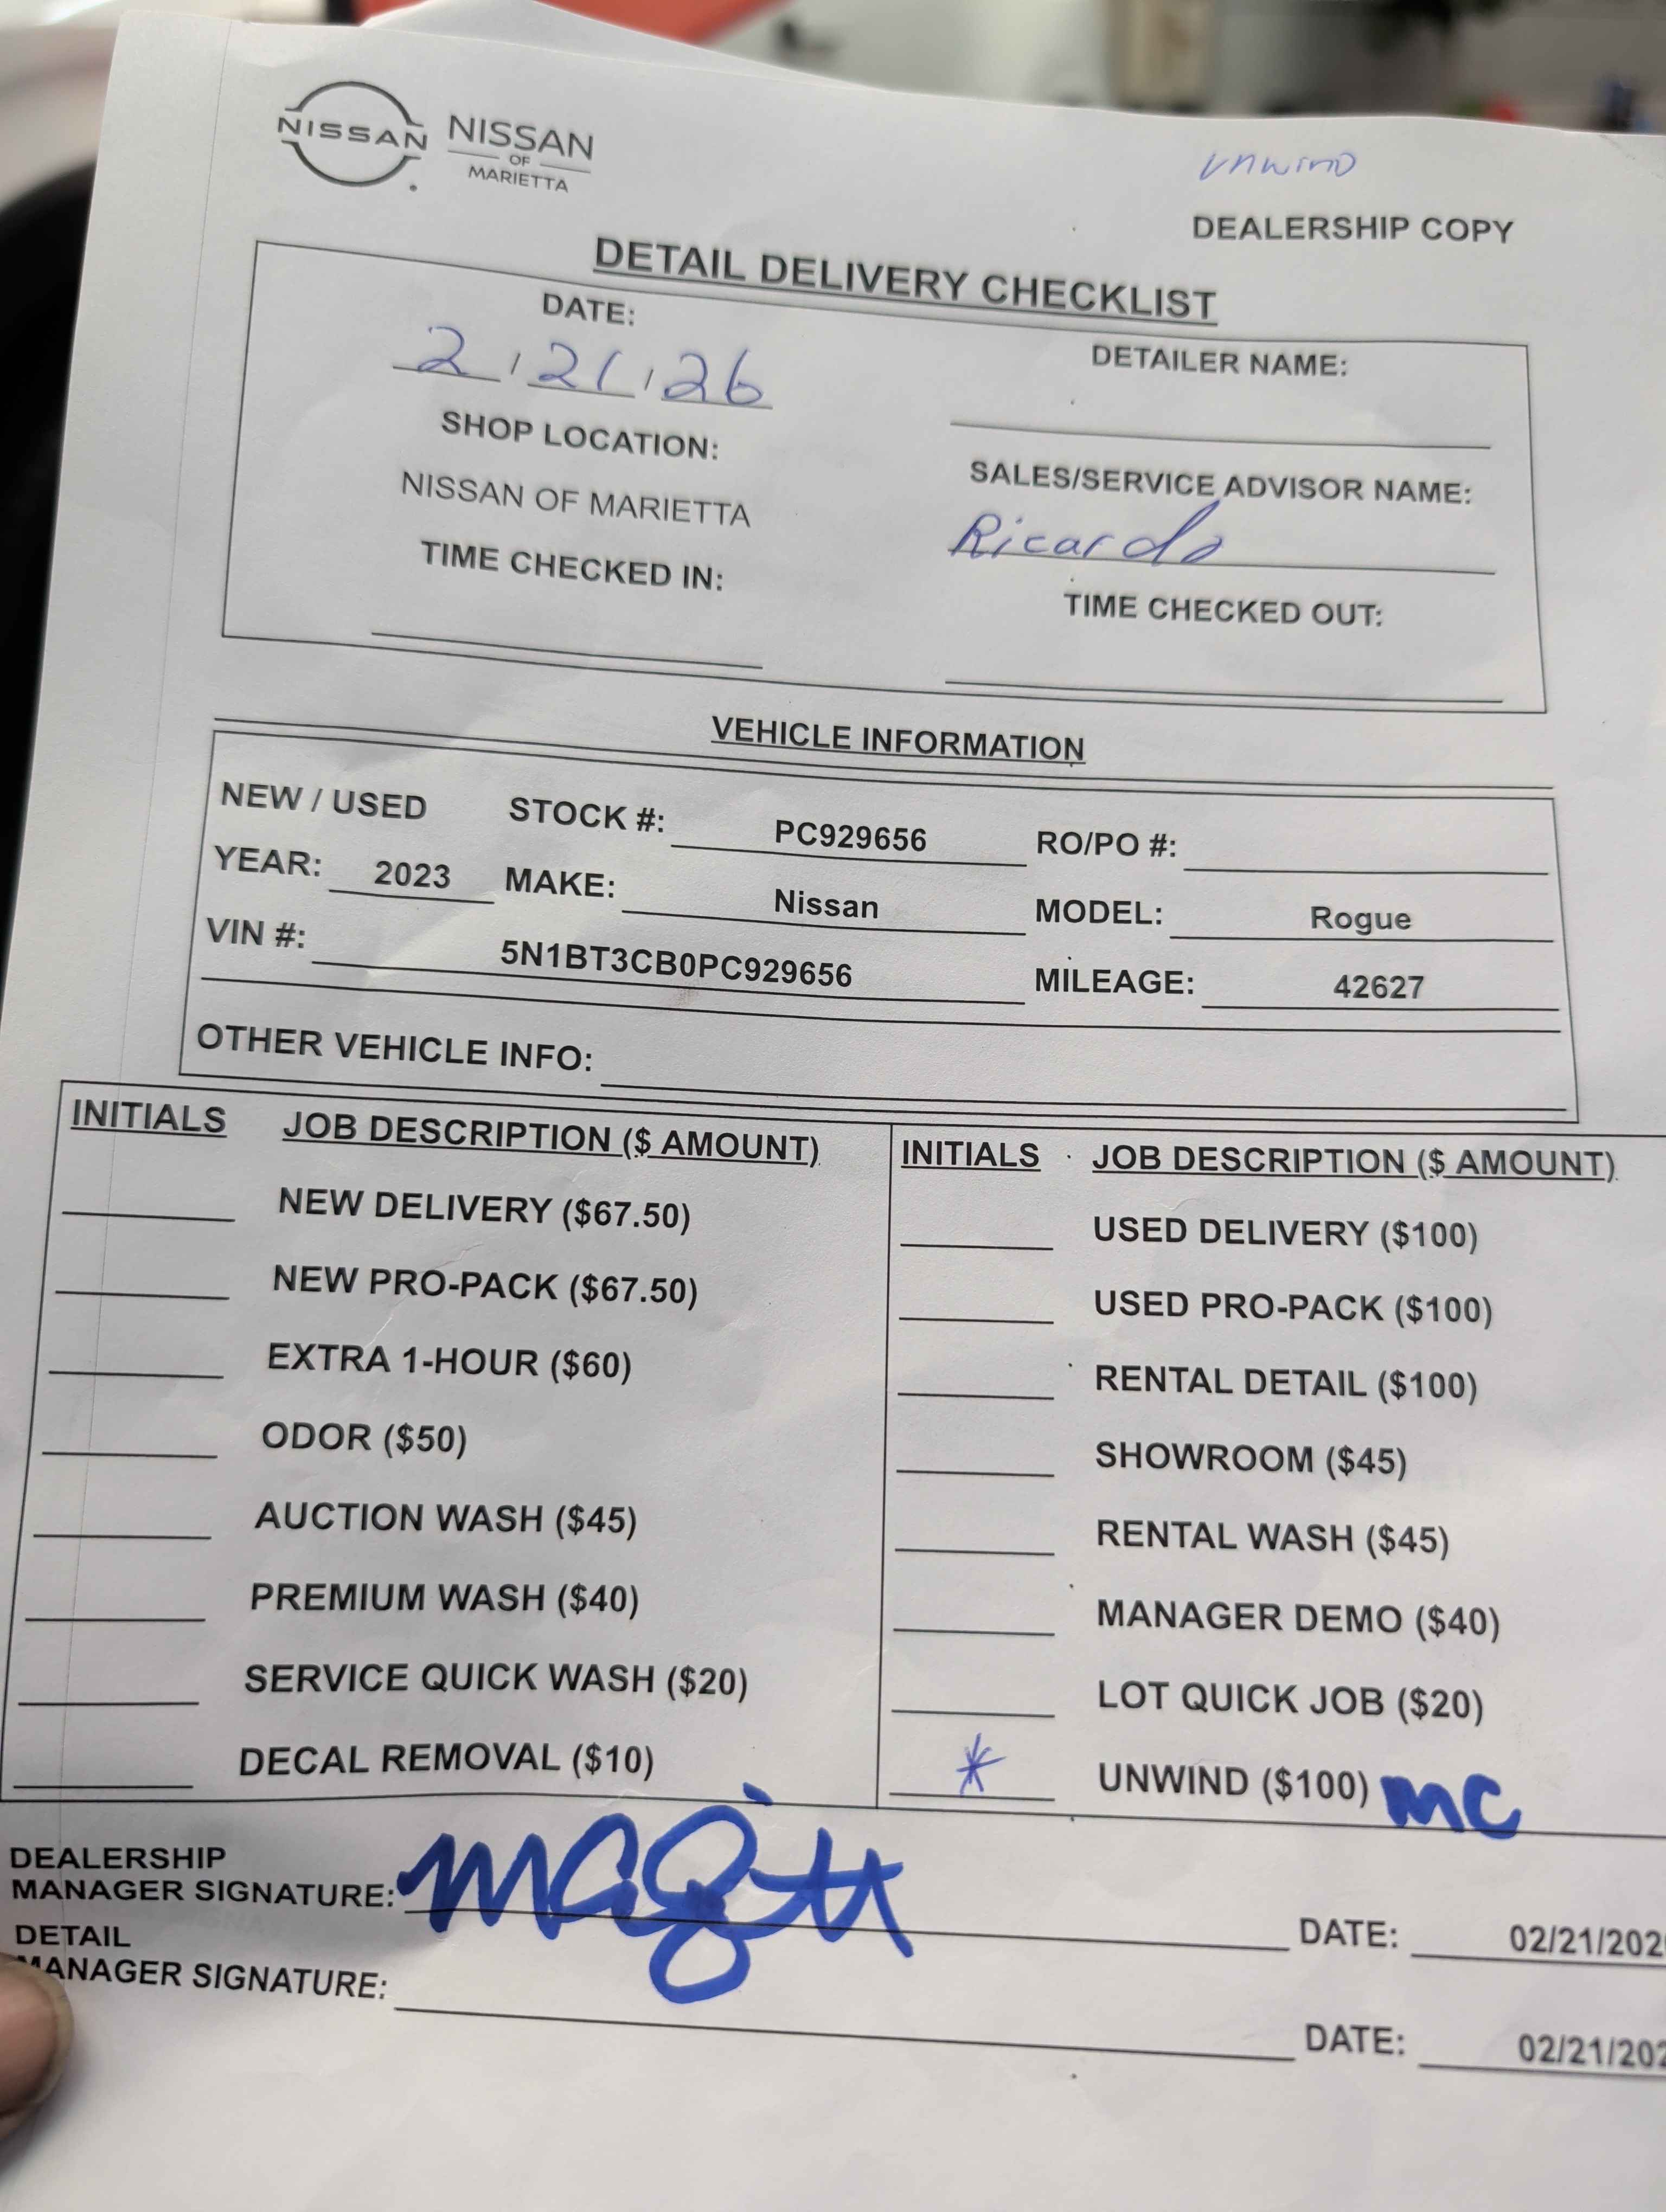 NISSAN NISSAN
OF
MARIETTA
UNWIND
DEALERSHIP COPY
DETAIL DELIVERY CHECKLIST
DATE:
2/21/26
DETAILER NAME:
SHOP LOCATION:
NISSAN OF MARIETTA
SALES/SERVICE ADVISOR NAME:
Ricardo
TIME CHECKED IN:
TIME CHECKED OUT:
VEHICLE INFORMATION
NEW / USED STOCK #: PC929656 RO/PO #:
YEAR: 2023 MAKE: Nissan MODEL: Rogue
VIN #: 5N1BT3CB0PC929656 MILEAGE: 42627
OTHER VEHICLE INFO:
INITIALS JOB DESCRIPTION ($ AMOUNT) INITIALS JOB DESCRIPTION ($ AMOUNT)
NEW DELIVERY ($67.50) USED DELIVERY ($100)
NEW PRO-PACK ($67.50) USED PRO-PACK ($100)
EXTRA 1-HOUR ($60) RENTAL DETAIL ($100)
ODOR ($50) SHOWROOM ($45)
AUCTION WASH ($45) RENTAL WASH ($45)
PREMIUM WASH ($40) MANAGER DEMO ($40)
SERVICE QUICK WASH ($20) LOT QUICK JOB ($20)
DECAL REMOVAL ($10) * UNWIND ($100) MC
DEALERSHIP
MANAGER SIGNATURE: DATE: 02/21/202
DETAIL
MANAGER SIGNATURE: DATE: 02/21/202